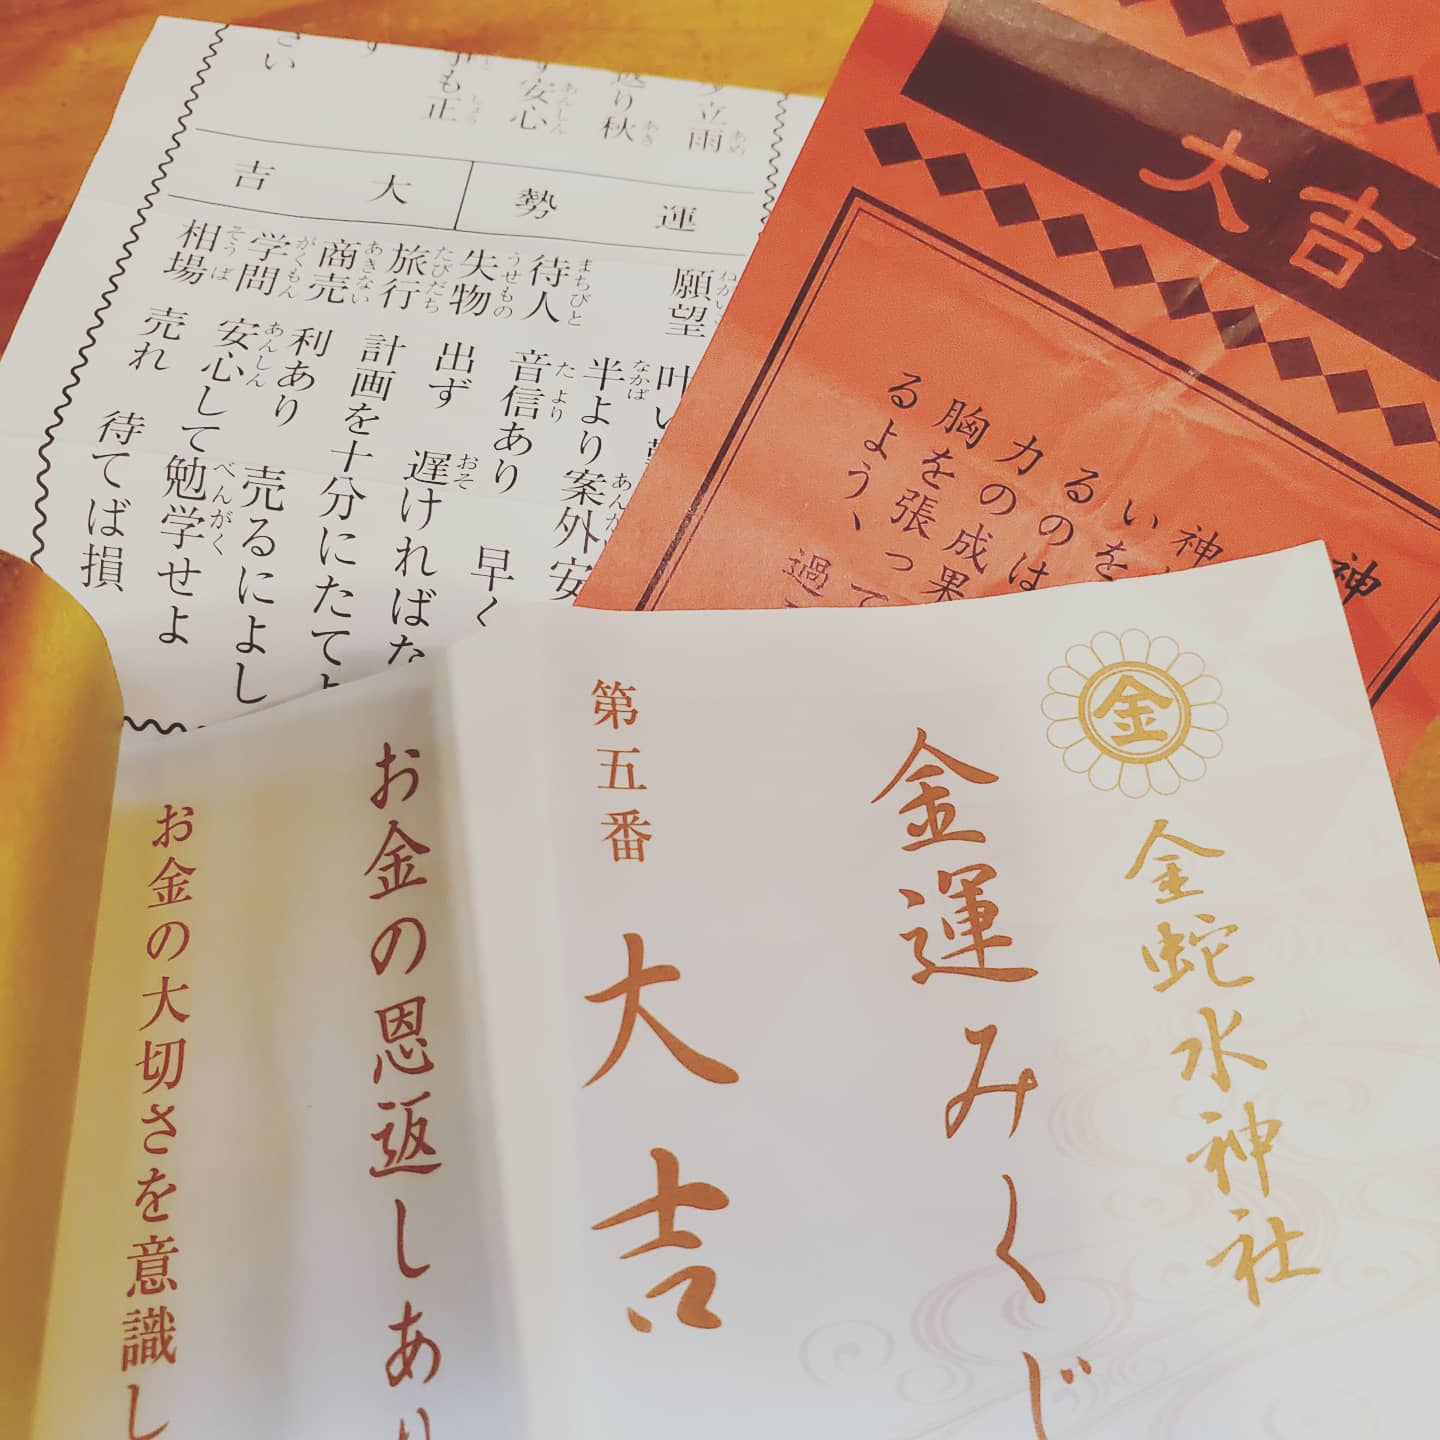 立雨
返り秋
安心
も正
さい
運勢
大吉
願望
待人 音信あり
半より案外安
失物 出ず 遅ければ
早く
旅行 計画を十分にたてよ
商売 利あり 売るによし
学問 安心して勉学せよ
相場 売れ 待てば損
大吉
神
神
い
るのを
力のは
胸の成果
を張って
るよう、
過
金
金蛇水神社
金運みくじ
第五番
大吉
お金の恩返しあり
お金の大切さを意識し